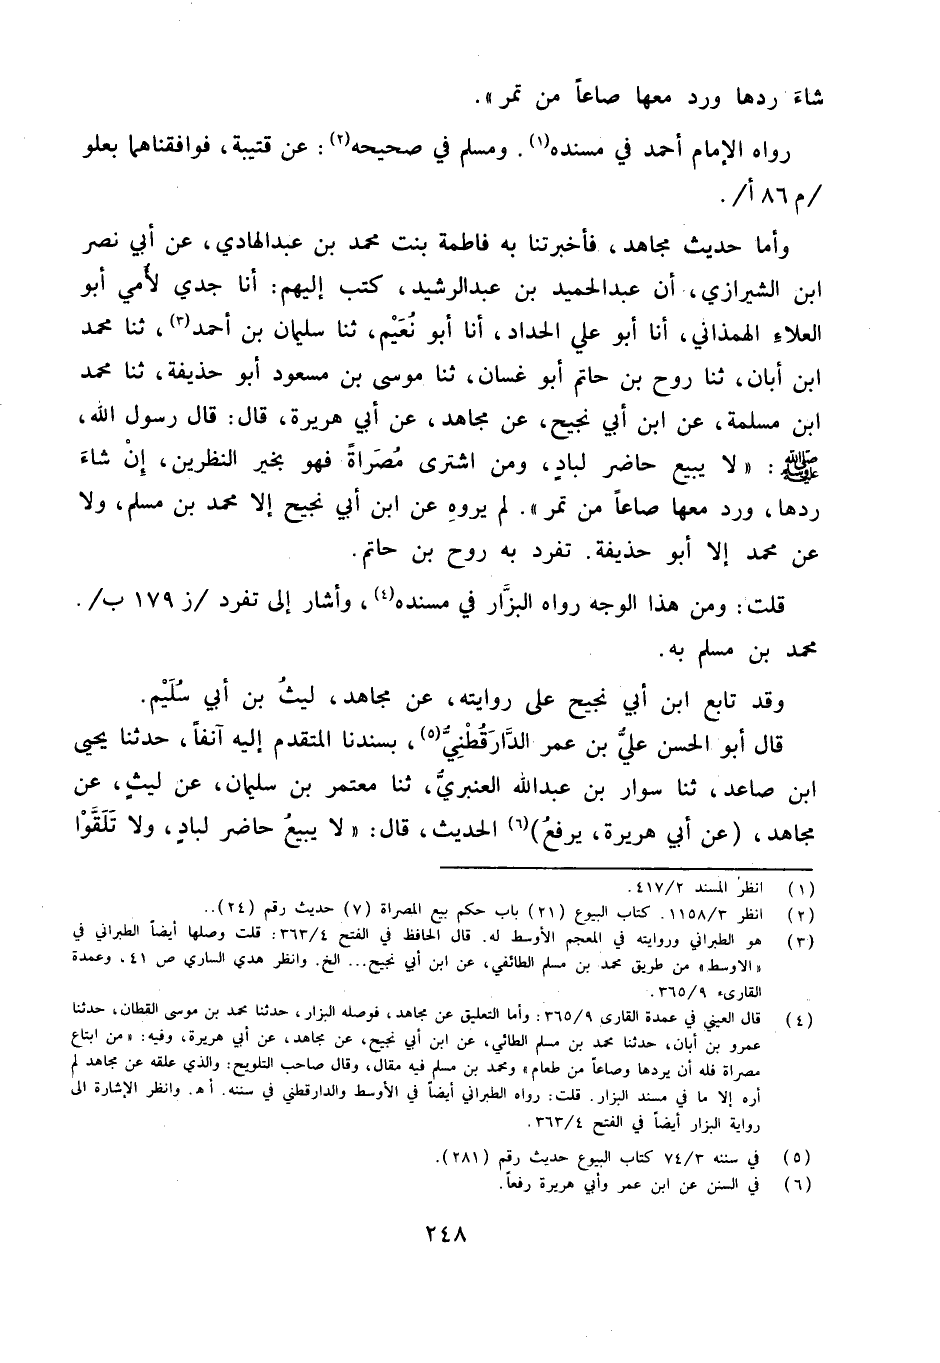 شاءَ ردها ورد معها صاعاً من تمر».
رواه الإمام أحمد في مسنده(١). ومسلم في صحيحه(٢): عن قتيبة، فوافقناهما بعلو
/م ٨٦ أ/.
وأما حديث مجاهد، فأخبرتنا به فاطمة بنت محمد بن عبدالهادي، عن أبي نصر
ابن الشيرازي، أن عبدالحميد بن عبدالرشيد، كتب إليهم: أنا جدي لأُمي أبو
العلاءِ الهمذاني، أنا أبو علي الحداد، أنا أبو نُعَيْم، ثنا سليمان بن أحمد(٣)، ثنا محمد
ابن أبان، ثنا روح بن حاتم أبو غسان، ثنا موسى بن مسعود أبو حذيفة، ثنا محمد
ابن مسلمة، عن ابن أبي نجيح، عن مجاهد، عن أبي هريرة، قال: قال رسول الله،
ﷺ: «لا يبيع حاضر لبادٍ، ومن اشترى مُصَراةً فهو بخير النظرين، إنْ شاءَ
ردها، ورد معها صاعاً من تمر». لم يروهِ عن ابن أبي نجيح إلا محمد بن مسلم، ولا
عن محمد إلا أبو حذيفة. تفرد به روح بن حاتم.
قلت: ومن هذا الوجه رواه البزَّار في مسنده(٤)، وأشار إلى تفرد /ز ١٧٩ ب/.
محمد بن مسلم به.
وقد تابع ابن أبي نجيح على روايته، عن مجاهد، ليثُ بن أبي سُلَيْم.
قال أبو الحسن عليُّ بن عمر الدَّارَقُطْنِيُّ(٥)، بسندنا المتقدم إليه آنفاً، حدثنا يحيى
ابن صاعد، ثنا سوار بن عبدالله العنبريُّ، ثنا معتمر بن سليمان، عن ليثٍ، عن
مجاهد، (عن أبي هريرة، يرفعُ)(٦) الحديث، قال: «لا يبيعُ حاضر لبادٍ، ولا تَلَقَّوْا
(١) انظر المسند ٤١٧/٢.
(٢) انظر ١١٥٨/٣. كتاب البيوع (٢١) باب حكم بيع المصراة (٧) حديث رقم (٢٤)..
(٣) هو الطبراني وروايته في المعجم الأوسط له. قال الحافظ في الفتح ٣٦٣/٤: قلت وصلها أيضاً الطبراني في
«الاوسط» من طريق محمد بن مسلم الطائفي، عن ابن أبي نجيح... الخ. وانظر هدي الساري ص ٤١، وعمدة
القارىء ٣٦٥/٩.
(٤) قال العيني في عمدة القارى ٣٦٥/٩: وأما التعليق عن مجاهد، فوصله البزار، حدثنا محمد بن موسى القطان، حدثنا
عمرو بن أبان، حدثنا محمد بن مسلم الطائي، عن ابن أبي نجيح، عن مجاهد، عن أبي هريرة، وفيه: «من ابتاع
مصراة فله أن يردها وصاعاً من طعام» ومحمد بن مسلم فيه مقال، وقال صاحب التلويح: والذي علقه عن مجاهد لم
أره إلا ما في مسند البزار. قلت: رواه الطبراني أيضاً في الأوسط والدارقطني في سننه. أ هـ. وانظر الإشارة الى
رواية البزار أيضاً في الفتح ٣٦٣/٤.
(٥) في سننه ٧٤/٣ كتاب البيوع حديث رقم (٢٨١).
(٦) في السنن عن ابن عمر وأبي هريرة رفعاً.
٢٤٨